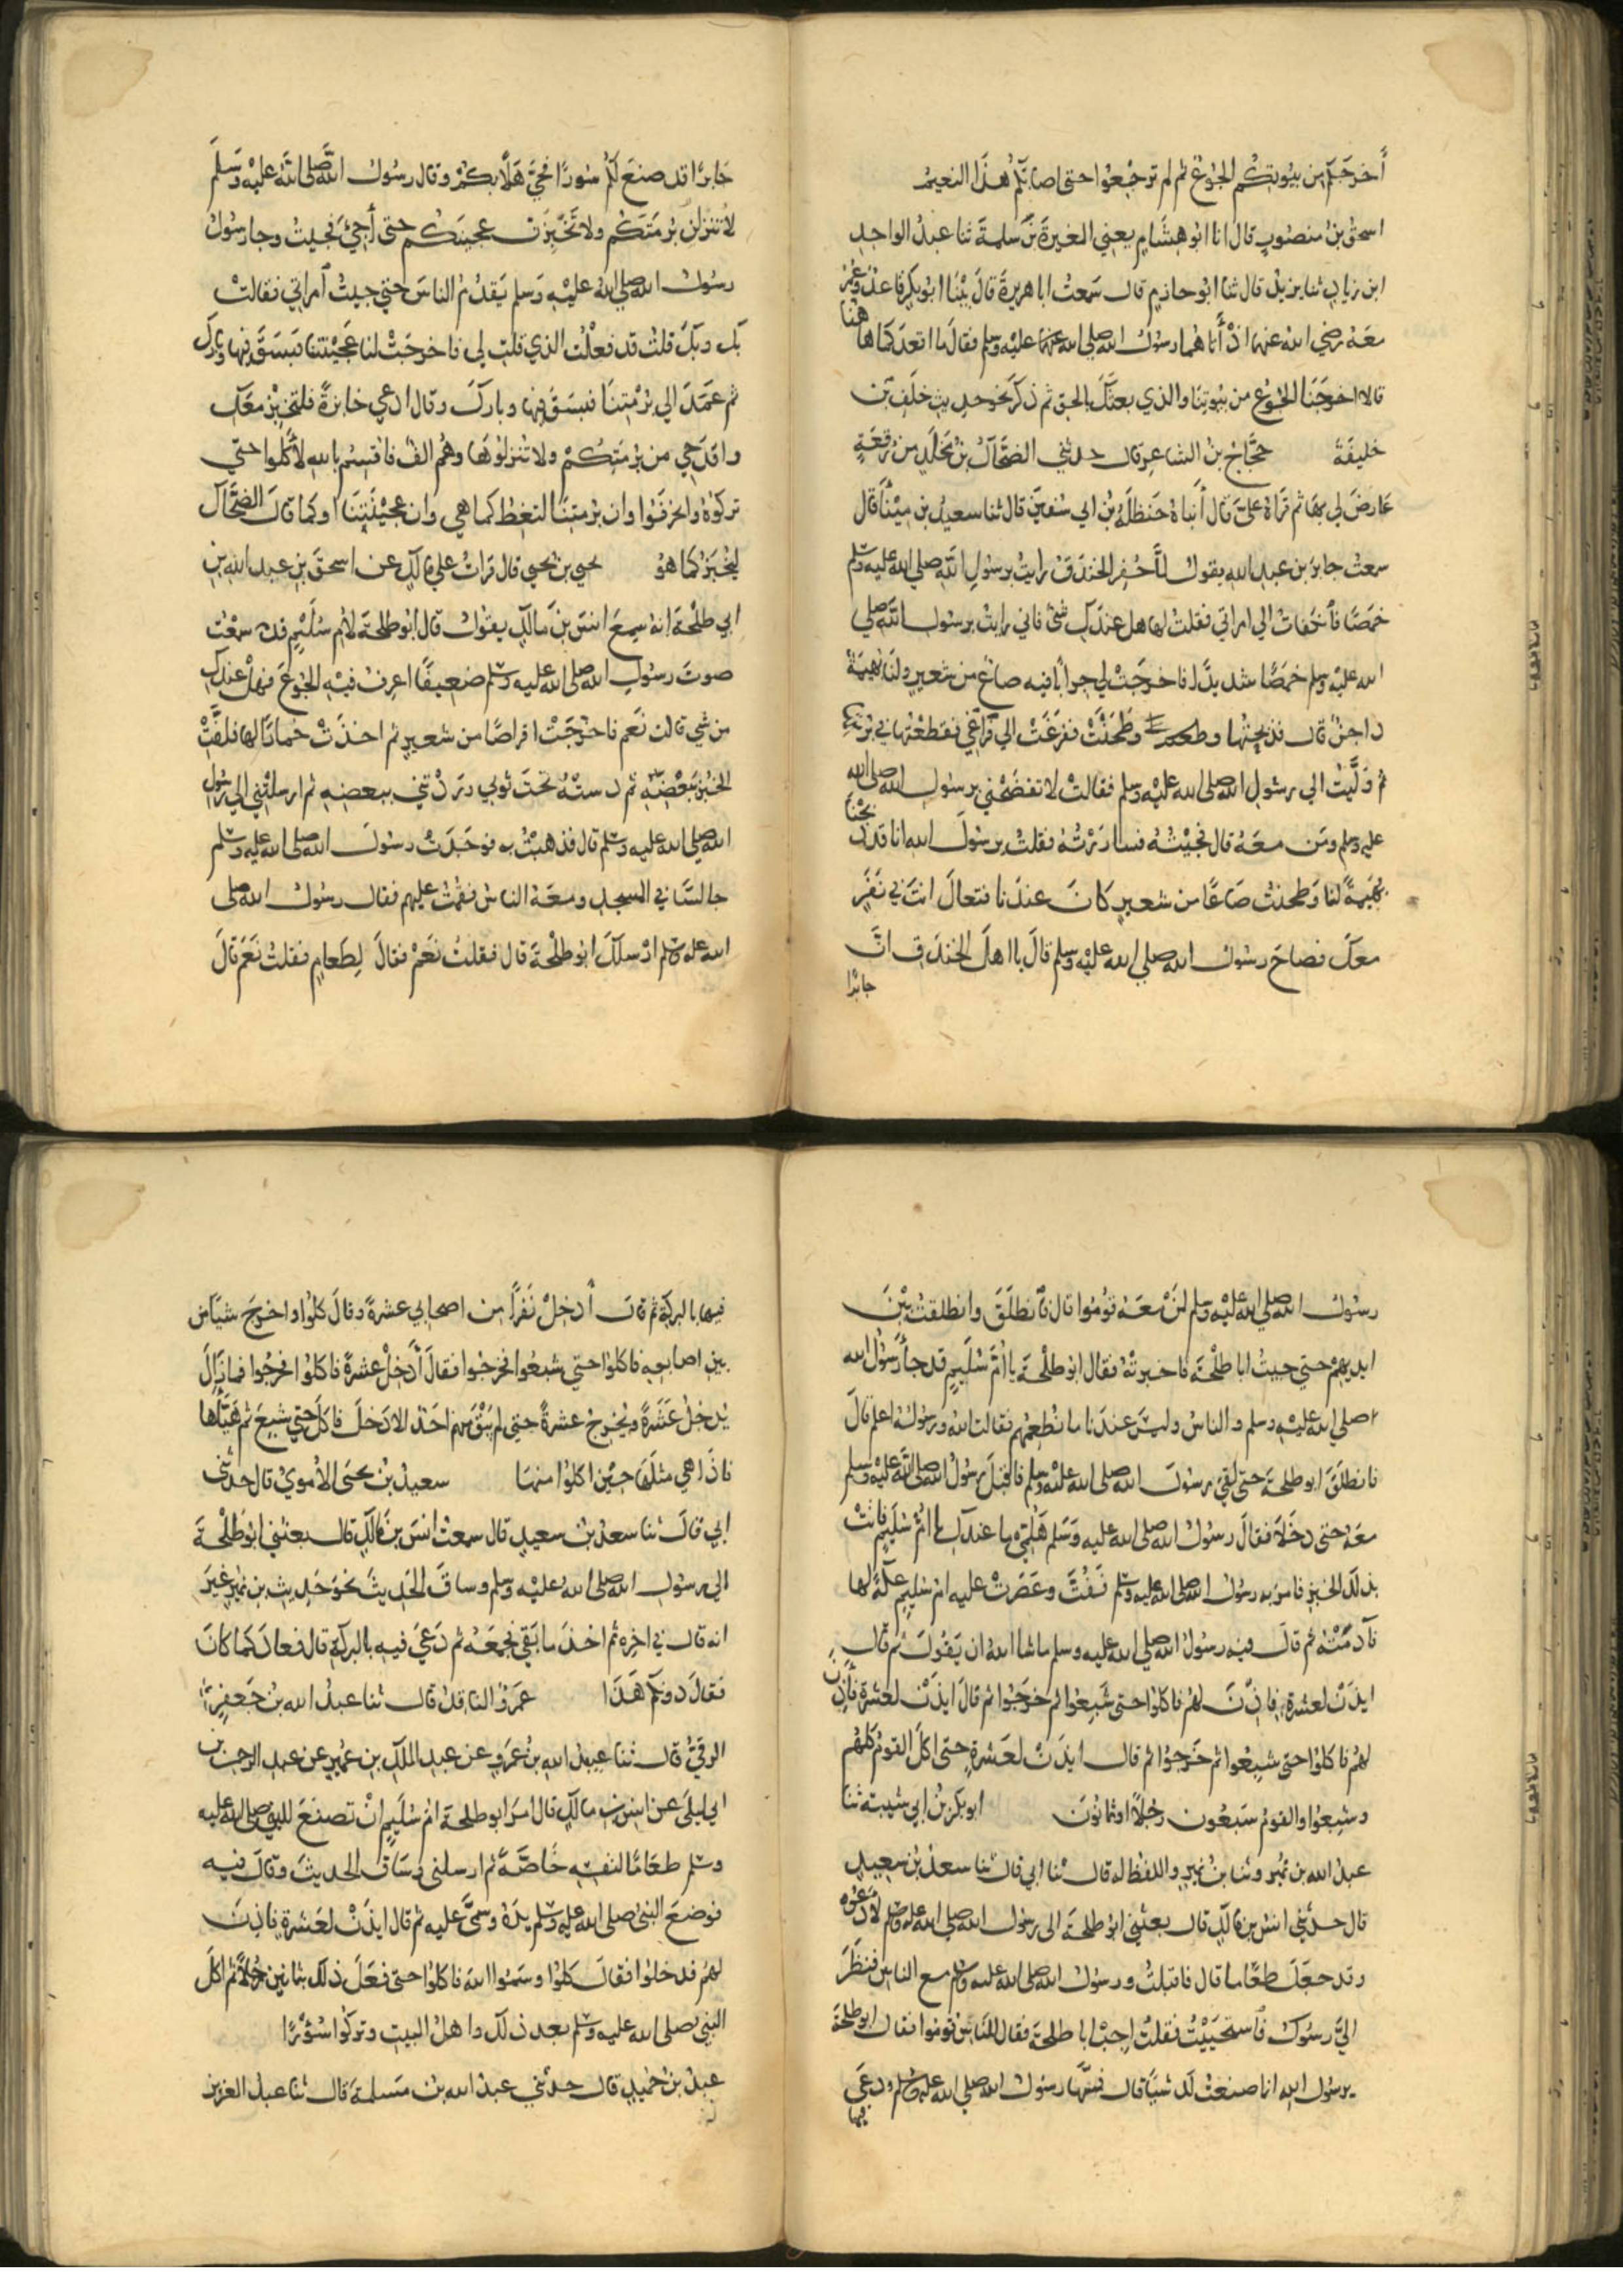 أخرجكم من بيوتكم الجوع ثم لم ترجعوا حتى اصابكم هذا النعيم
اسحق بن منصور قال انا ابو هشام يعني المغيرة بن سلمة ثنا عبد الواحد
ابن زياد ثنا يزيد قال ثنا ابو حازم قال سمعت ابا هريرة قال بينا ابو بكر قاعد وعمر
معه رضي الله عنهما اذ أتاهما رسول الله صلى الله عليه وسلم فقال ما اقعدكما هاهنا
قالا اخرجنا الجوع من بيوتنا والذي بعثك بالحق ثم ذكر نحو حديث خلف بن
خليفة حجاج بن الشاعر قال حدثني الضحاك بن مخلد من رقعة
عارض لي بها ثم قراه علي قال أنباه حنظلة بن ابي سفين قال ثنا سعيد بن مينا قال
سمعت جابر بن عبد الله يقول لما حفر الخندق رايت برسول الله صلى الله عليه وسلم
خمصا فانكفات الي امراتي فقلت لها هل عندك شئ فاني رايت برسول الله صلي
الله عليه وسلم خمصا شديدا فاخرجت لي جرابا فيه صاع من شعير ولنا بهيمة
داجن قال فذبحتها وطحنت ففرغت الي فراغي فقطعتها في برمتها
ثم وليت الي رسول الله صلى الله عليه وسلم فقالت لا تفضحني برسول الله صلى الله
عليه وسلم ومن معه قال فجيته فساررته فقلت يرسول الله انا قد ذبحنا
بهيمة لنا وطحنت صاعا من شعير كان عندنا فتعال انت في نفر
معك فصاح رسول الله صلي الله عليه وسلم قال يا اهل الخندق ان
جابرا
جابرا قد صنع لكم سورا فحي هلا بكم وقال رسول الله صلى الله عليه وسلم
لا تنزلن برمتكم ولا تخبزن عجينكم حتى أجيء فجيت وجا رسول
رسول الله صلي الله عليه وسلم يقدم الناس حتي جيت امراتي فقالت
بك وبك قلت قد فعلت الذي قلت لي فاخرجت لنا عجينتنا فبسق فيها وبارك
ثم عمد الي برمتنا فبسق فيها وبارك وقال ادعي خابزة فلتخبز معك
واقدحي من برمتكم ولا تنزلوها وهم الف فاقسم بالله لأكلوا حتي
تركوه وانحرفوا وان برمتنا لتغط كما هي وان عجينتنا او كما قال الضحاك
ليخبز كما هو يحيي بن يحيي قال قرات علي مالك عن اسحق بن عبد الله بن
ابي طلحة انه سمع انس بن مالك يقول قال ابو طلحة لام سليم قد سمعت
صوت رسول الله صلى الله عليه وسلم ضعيفا اعرف فيه الجوع فهل عندك
من شي قالت نعم فاخرجت اقراصا من شعير ثم اخذت خمارا لها فلفت
الخبز ببعضه ثم دسته تحت ثوبي وردتني ببعضه ثم ارسلتني الي رسول
الله صلي الله عليه وسلم قال فذهبت به فوجدت رسول الله صلى الله عليه وسلم
جالسا في المسجد ومعه الناس فقمت عليهم فقال رسول الله صلى
الله عليه وسلم ارسلك ابو طلحة قال فقلت نعم فقال لطعام فقلت نعم قال
رسول الله صلي الله عليه وسلم لمن معه قوموا قال فانطلق وانطلقت بين
ايديهم حتي جيت ابا طلحة فاخبرته فقال ابو طلحة يا ام سليم قد جأ رسول الله
صلي الله عليه وسلم والناس وليس عندنا ما نطعمهم فقالت الله ورسوله اعلم قال
فانطلق ابو طلحة حتى لقي رسول الله صلى الله عليه وسلم فاقبل رسول الله صلى الله عليه وسلم
معه حتى دخلا فقال رسول الله صلى الله عليه وسلم هلمي ما عندك يا ام سليم فاتت
بذلك الخبز فامر به رسول الله صلى الله عليه وسلم ففت وعصرت عليه ام سليم عكة لها
فآدمته ثم قال فيه رسول الله صلي الله عليه وسلم ما شا الله ان يقول ثم قال
ايذن لعشرة فاذن لهم فاكلوا حتى شبعوا ثم خرجوا ثم قال ايذن لعشرة فأذن
لهم فاكلوا حتى شبعوا ثم خرجوا ثم قال ايذن لعشرة حتى اكل القوم كلهم
وشبعوا والقوم سبعون رجلا او ثمانون ابو بكر بن ابي شيبة ثنا
عبد الله بن نمير وثنا بن نمير واللفظ له قال ثنا ابي قال ثنا سعد بن سعيد
قال حدثني انس بن مالك قال بعثني ابو طلحة الى رسول الله صلي الله عليه وسلم لادعوه
وقد جعل طعاما قال فاقبلت ورسول الله صلى الله عليه وسلم مع الناس فنظر
الي رسول فاستحييت فقلت اجب ابا طلحة فقال للناس قوموا فقال ابو طلحة
يرسول الله انما صنعت لك شيا قال فمسها رسول الله صلي الله عليه وسلم ودعى
فيها
فيها بالبركة ثم قال أدخل نفرا من اصحابي عشرة وقال كلوا واخرج شيا من
بين اصابعه فاكلوا حتي شبعوا فخرجوا فقال أدخل عشرة فاكلوا فخرجوا فما زال
يدخل عشرة ويخرج عشرة حتى لم يبق منهم احد الا دخل فاكل حتي شبع ثم هيأها
فاذا هي مثلها حين اكلوا منها سعيد بن يحيى الأموي قال حدثني
ابي قال ثنا سعد بن سعيد قال سمعت انس بن مالك قال بعثني ابو طلحة
الي رسول الله صلى الله عليه وسلم وساق الحديث نحو حديث بن نمير غير
انه قال في اخره ثم اخذ ما بقي فجمعه ثم دعى فيه بالبركة قال فعاد كما كان
فقال دونكم هذا عمرو الناقد قال ثنا عبد الله بن جعفر
الرقي قال ثنا عبيد الله بن عمرو عن عبد الملك بن عمير عن عبد الرحمن بن
ابي ليلى عن انس بن مالك قال امر ابو طلحة ام سليم ان تصنع للنبي صلى الله عليه
وسلم طعاما لنفسه خاصة ثم ارسلني وساق الحديث وقال فيه
فوضع النبي صلى الله عليه وسلم يده وسمى عليه ثم قال ايذن لعشرة فاذن
لهم فدخلوا فقال كلوا وسموا الله فاكلوا حتى فعل ذلك بثمانين رجلا ثم اكل
النبي صلى الله عليه وسلم بعد ذلك واهل البيت وتركوا سؤرا
عبد بن حميد قال حدثني عبد الله بن مسلمة قال ثنا عبد العزيز